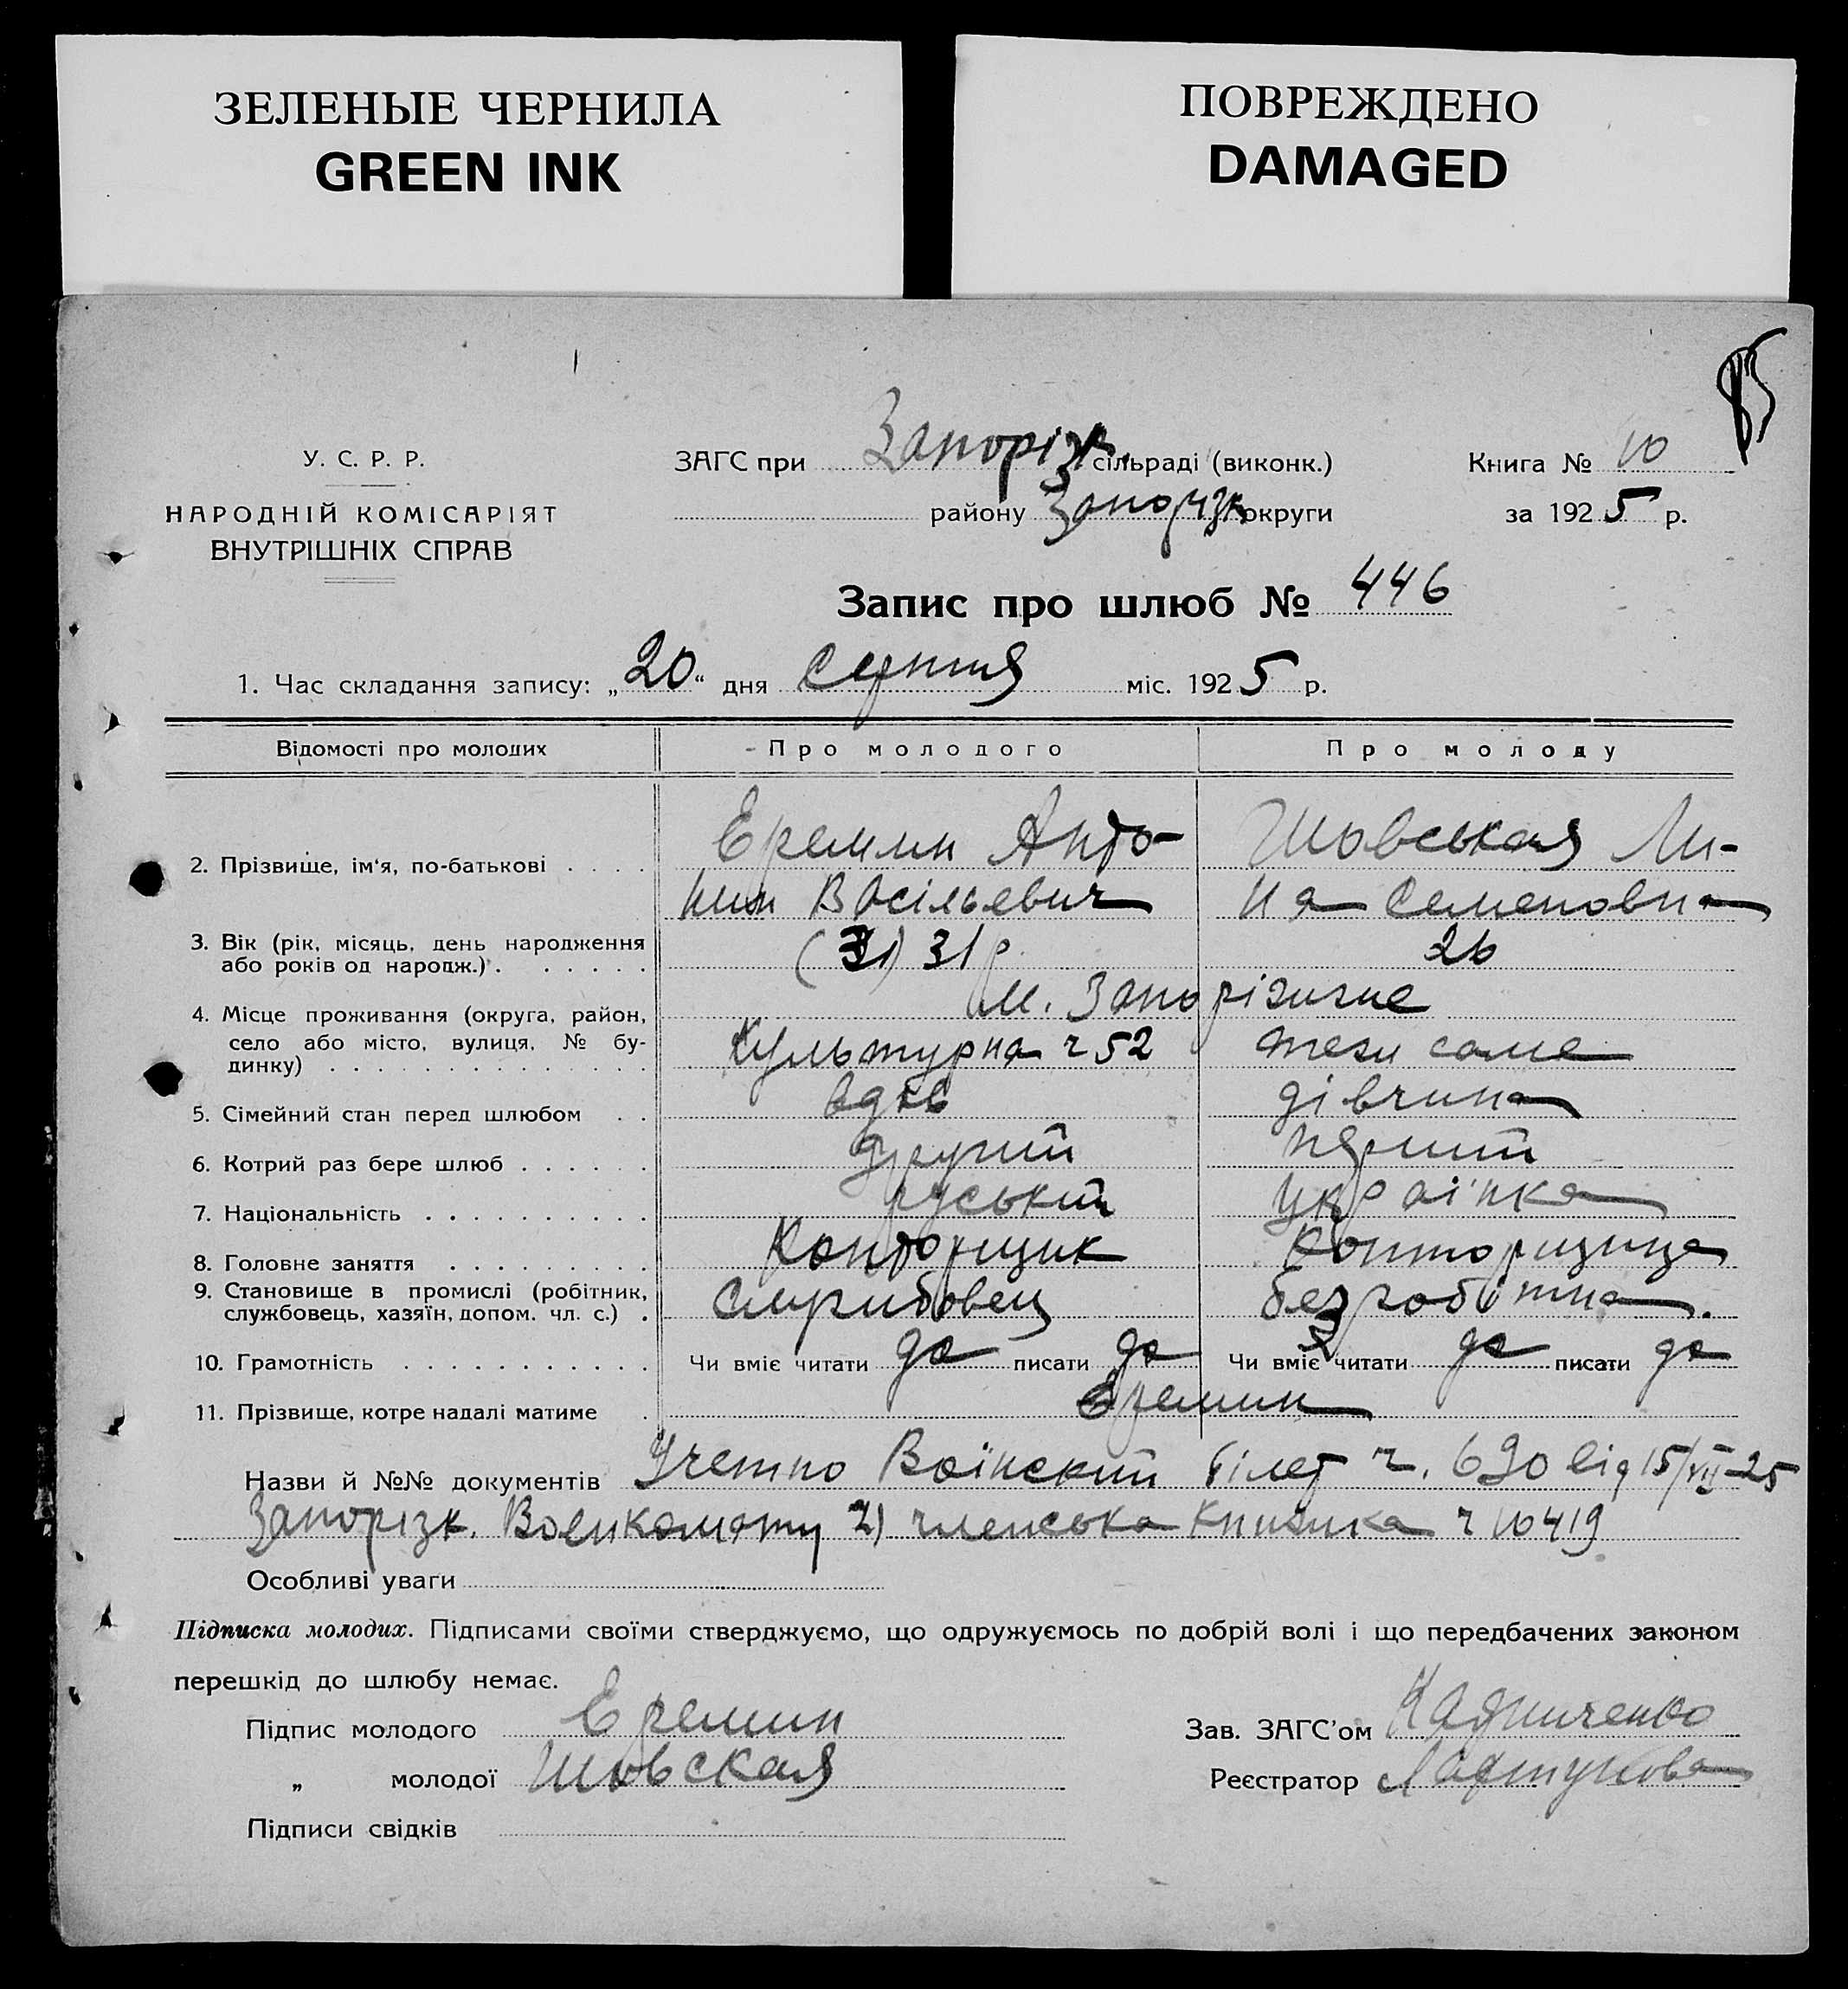 ЗЕЛЕНЫЕ ЧЕРНИЛА
GREEN INK
ПОВРЕЖДЕНО
DAMAGED
У. С. Р. Р.
НАРОДНІЙ КОМІСАРІЯТ
ВНУТРІШНІХ СПРАВ
ЗАГС при Запорізк. сільраді (виконк.)
району Запорізк округи
Книга № 10
за 1925 р.
Запис про шлюб № 446
1. Час складання запису: „20“ дня Серпня міс. 1925 р.
Відомості про молодих Про молодого Про молоду
2. Прізвище, ім'я, по-батькові . . . . Еремин Анто- Шовськая Ли-
нин Васільевич на Семеновна
3. Вік (рік, місяць, день народження
або років од народж.) . . . . . . (31) 31 р. 26
4. Місце проживання (округа, район, м. Запоріжже
село або місто, вулиця, № бу-
динку) . . . . . . . . . . . . . . Культурна ч 52 теж саме
5. Сімейний стан перед шлюбом . . вдів дівчина
6. Котрий раз бере шлюб . . . . . . другий перший
7. Національність . . . . . . . . . . руський українка
8. Головне заняття . . . . . . . . . Конторщик Конторщица
9. Становище в промислі (робітник,
службовець, хазяїн, допом. чл. с.) . Службовец безробітна.
10. Грамотність . . . . . . . . . . . Чи вміє читати да писати да Чи вміє читати да писати да
11. Прізвище, котре надалі матиме . Еремин
Назви й №№ документів Учетно Воїнский білет ч. 690 від 15/VII-25
Запорізк. Военкомату 2) членська книжка ч 10419
Особливі уваги
Підписка молодих. Підписами своїми стверджуємо, що одружуємось по добрій волі і що передбачених законом
перешкід до шлюбу немає.
Підпис молодого Еремин
„ молодої Шовская
Підписи свідків
Зав. ЗАГС'ом
Реєстратор